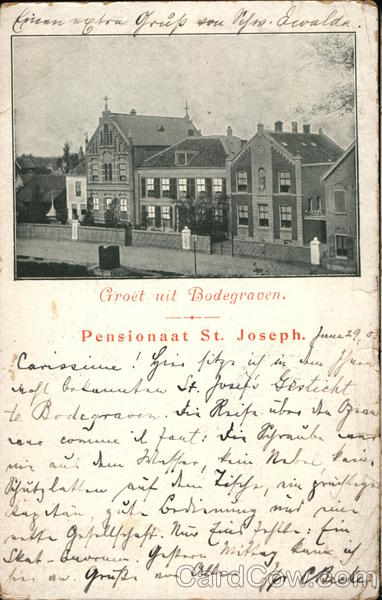 Einen extra Gruß von Schw. Ewalda.
Groet uit Bodegraven.
Pensionaat St. Joseph. June 29, 03
Carissime! Hier sitze ich in dem Ihnen
wohl bekannten St. Josefs Gesticht
te Bodegraven. Die Reise über den Ozean
war comme il faut: Die Schraube war
nie aus dem Wasser, kein Nebel, keine
Schutzlatten auf dem Tische, ein prächtiger
Kapitän, gute Bedienung und eine
nette Gesellschaft. Nur Eins fehlte: Ein
Skat. Gestern Mittag kam ich
hier an. Grüße von
CardCow.com